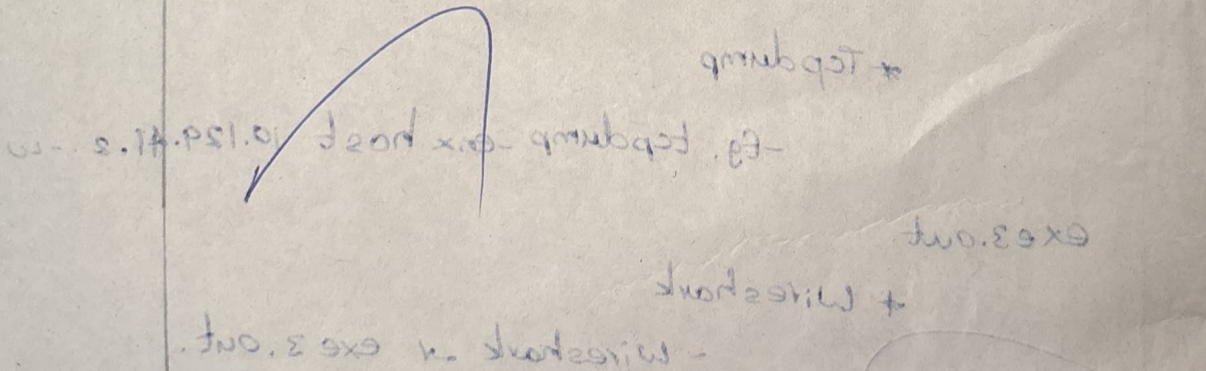 * Tcpdump
-Eg. tcpdump -enx host 10.129.41.2 -w
exe3.out
* Wireshark
- Wireshark -r exe3.out.